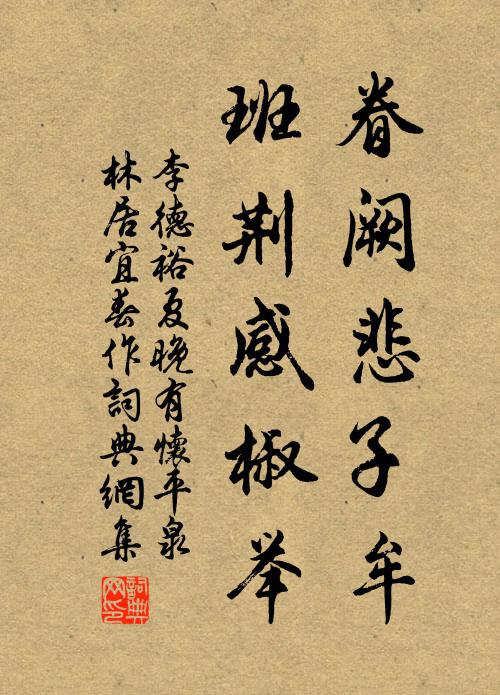 眷阙悲子牟
班荆感椒举
李德裕夏晚有懷平泉
林居宜春作詞典網集
詞典網印